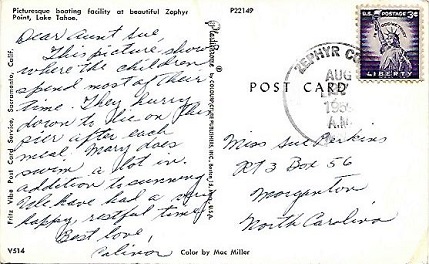 Picturesque boating facility at beautiful Zephyr
Point, Lake Tahoe.
P22149
Dear Aunt Sue,
This picture shows
where the children
spend most of their
time. They hurry
down to lie on this
pier after each
meal. Mary does
swim a lot in
addition to sunning.
We have had a
happy, restful time.
Best love,
Fritz Vibe Post Card Service, Sacramento, Calif.
Plastichrome
V514
Color by Mac Miller
POST CARD
ZEPHYR
AUG
A.M.
U.S. POSTAGE 3¢
LIBERTY
Miss Sue Perkins
Rt 3 Box 56
Morganton
North Carolina